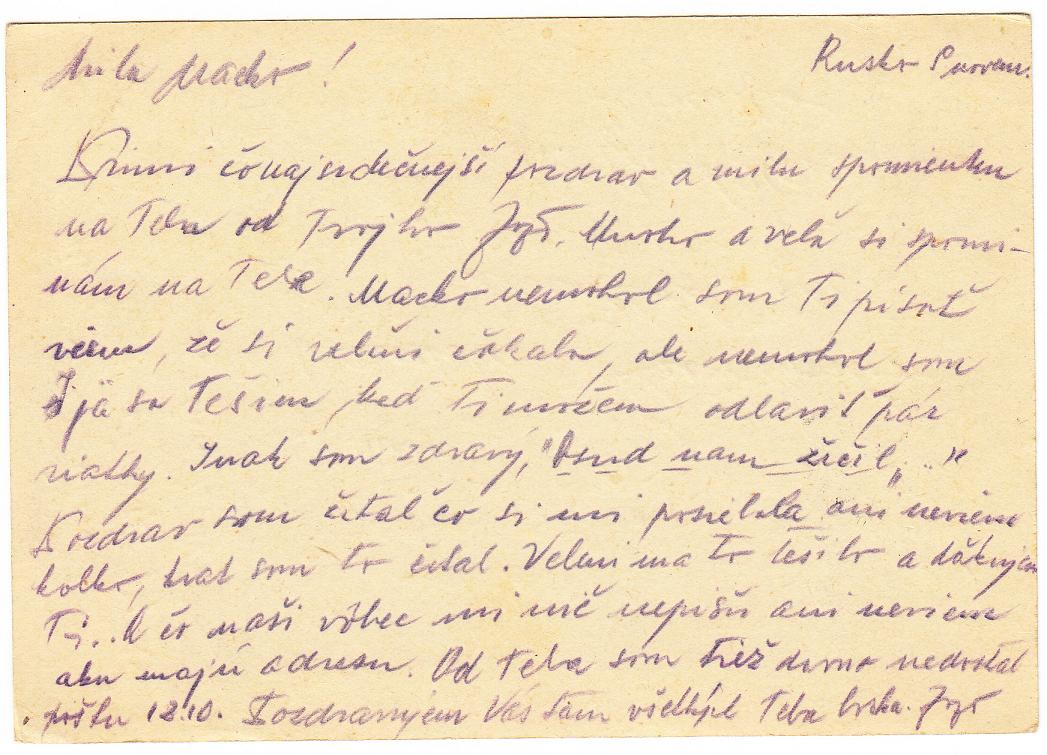 Milá Macko! Rusko
čo najsrdečnejší pozdrav a milu spomienku
na Teba od Tvojho Jozš. a veľa si spomi-
nám na Teba. Macko nemohol som Ti písať
viem, že si velmi čakala, ale nemohol som
I já sa teším, keď Ti možem odlaviť pár
riatky. Inak som zdravý, "Osud nam žičil„..."
Pozdrav som čital čo si mi posielala ani neviem
kolko krat som to čital. Velmi ma to tešilo a
Ti.. A čo naši vôbec mi nič nepišu ani neviem
aku majú adresu. Od Teba som tiež davno nedostal
poštu 12.10. Pozdravujem Vás tam Teba